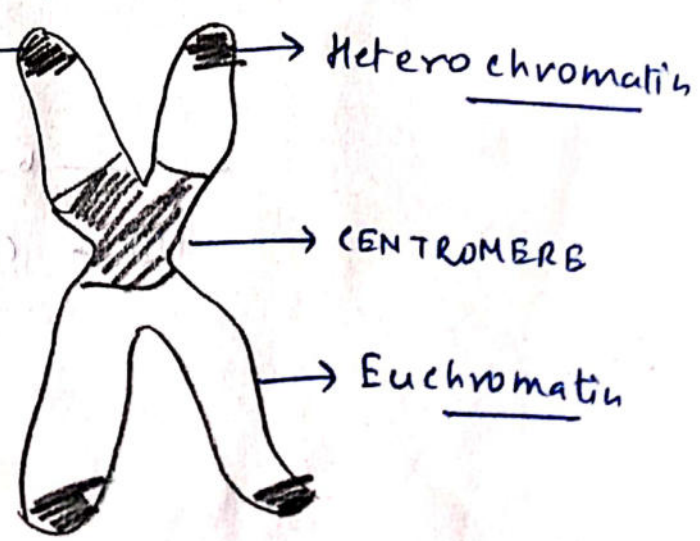 Heterochromatin
CENTROMERE
Euchromatin